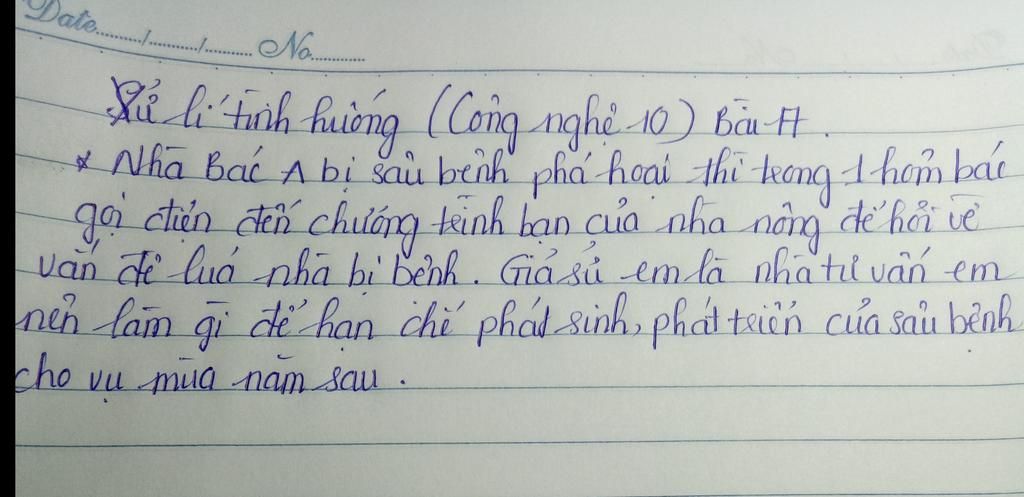 Date......./......./....... No.......
Xử lí tình huống (Công nghệ 10) Bài 17.
* Nhà Bác A bị sâu bệnh phá hoại thì trong 1 hôm bác
gọi điện đến chương trình bạn của nhà nông để hỏi về
vấn đề lúa nhà bị bệnh. Giả sử em là nhà tư vấn em
nên làm gì để hạn chế phát sinh, phát triển của sâu bệnh
cho vụ mùa năm sau.